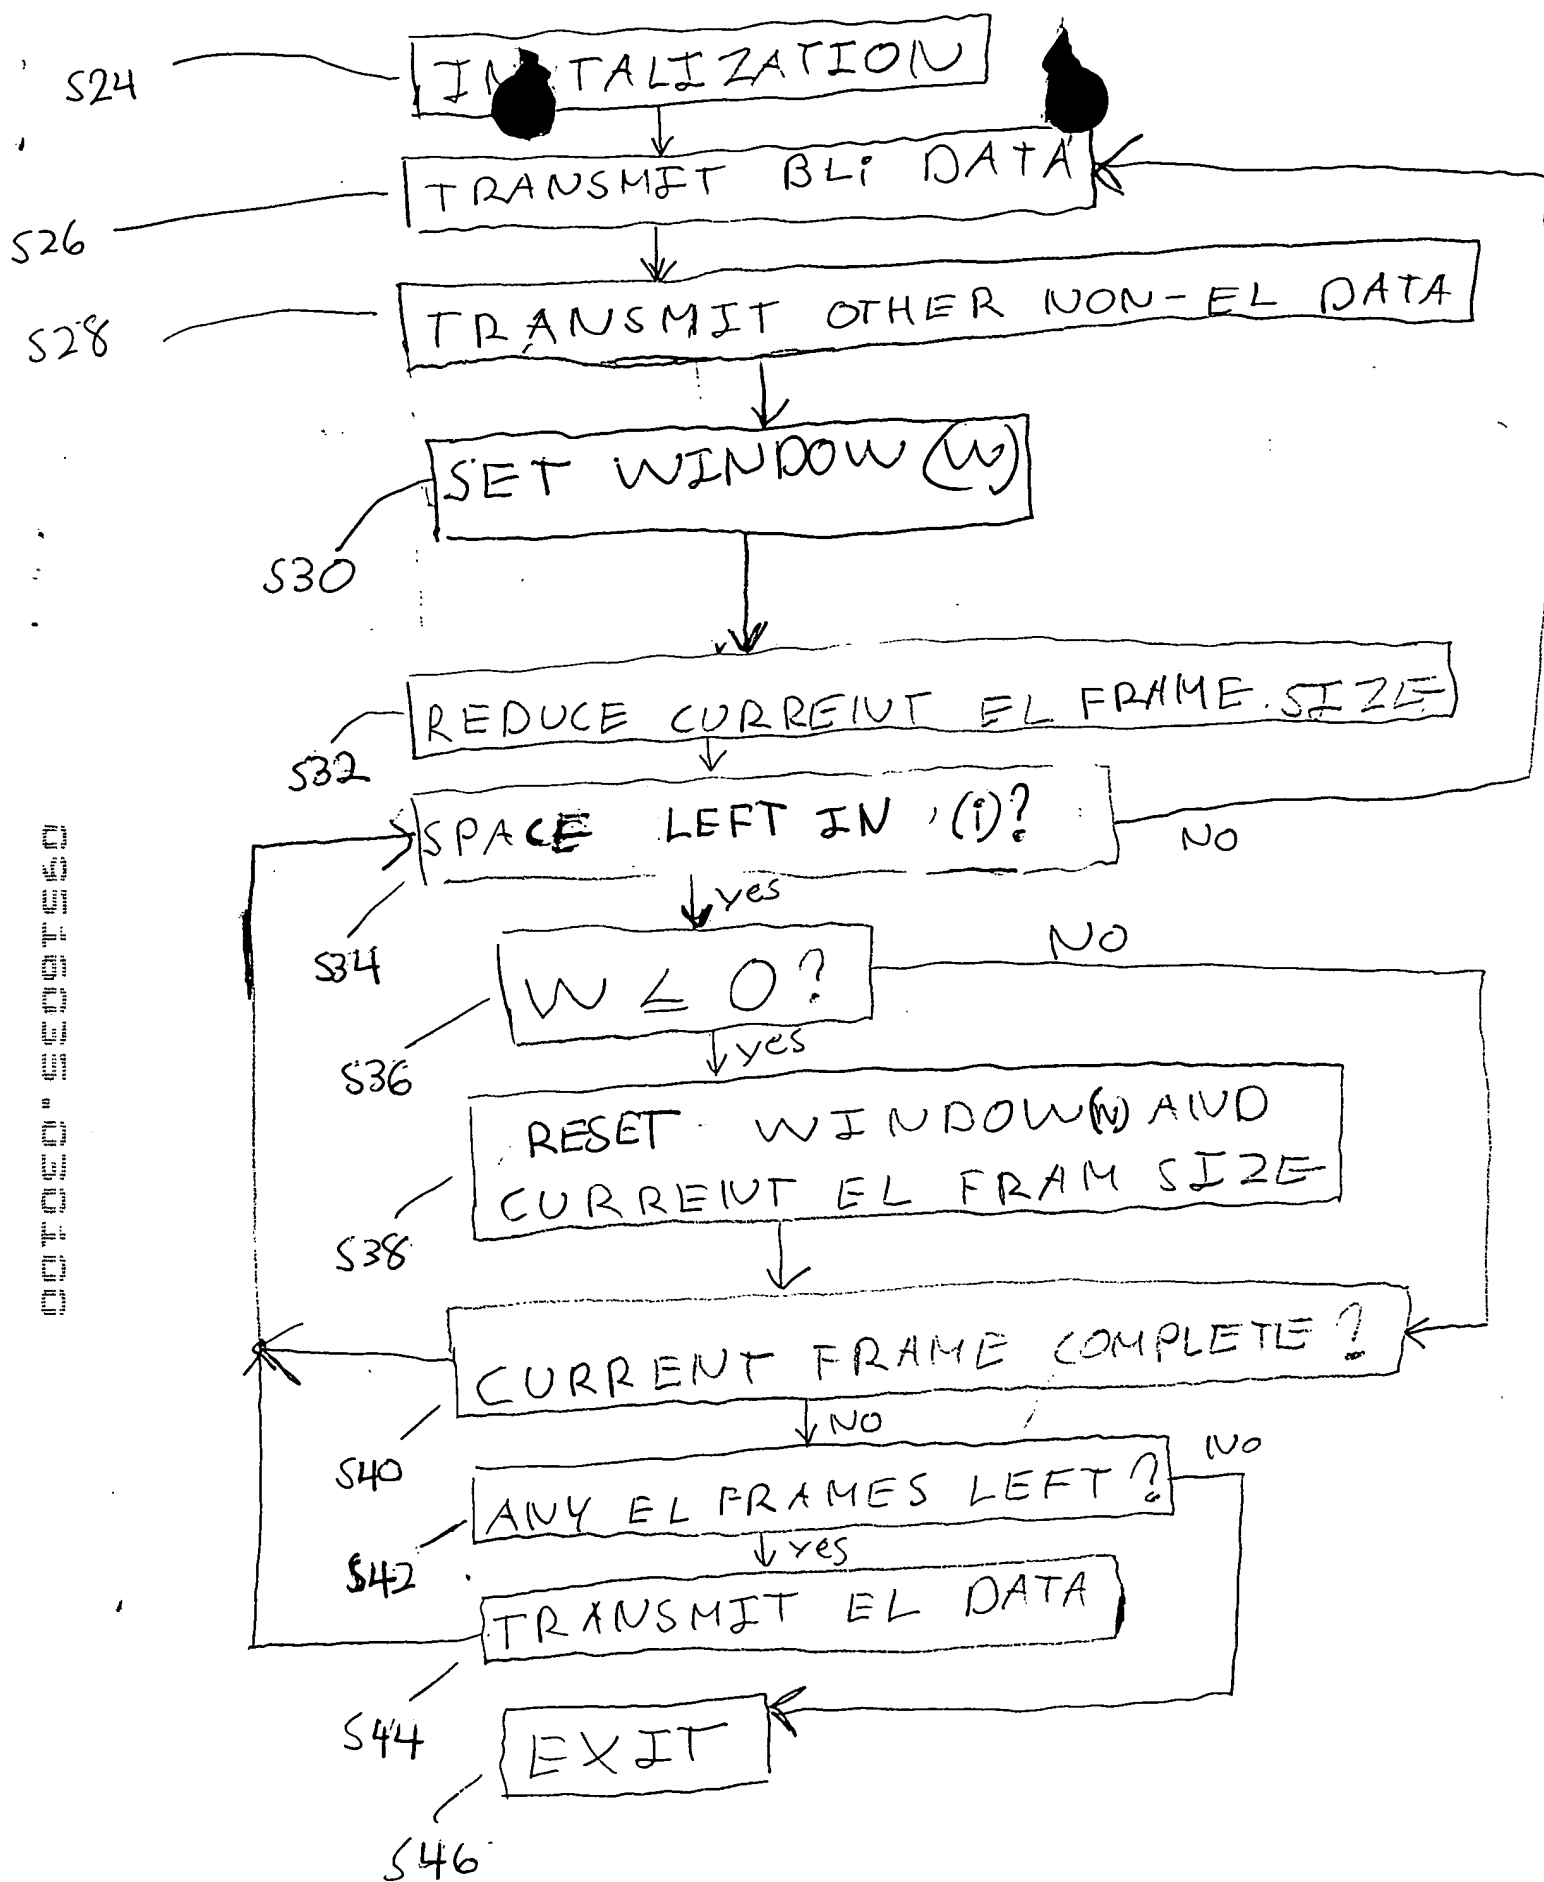 S24
IN TALIZATION
TRANSMIT BLi DATA
S26
TRANSMIT OTHER NON-EL DATA
S28
SET WINDOW (W)
S30
REDUCE CURRENT EL FRAME SIZE
S32
SPACE LEFT IN (i)?
NO
yes
S34
NO
W ≤ 0?
yes
S36
RESET WINDOW(W) AND
CURRENT EL FRAM SIZE
S38
CURRENT FRAME COMPLETE?
NO
S40
NO
ANY EL FRAMES LEFT?
yes
S42
TRANSMIT EL DATA
S44
EXIT
S46